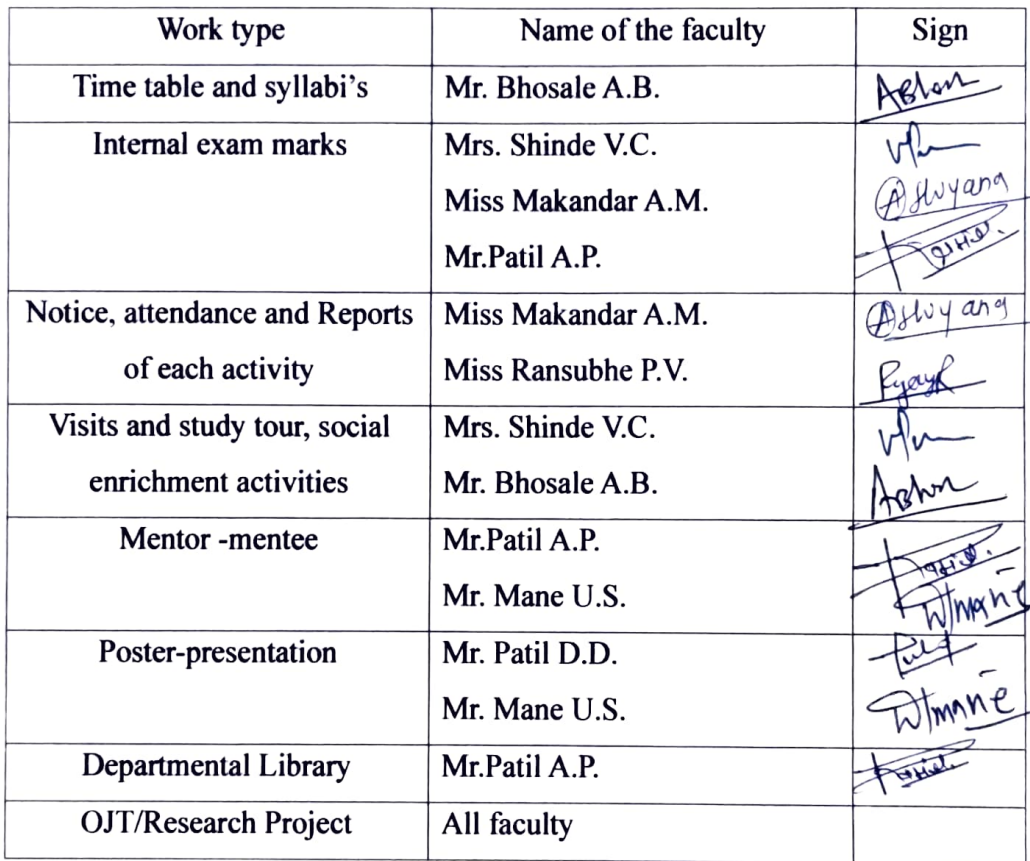 Work type Name of the faculty Sign
Time table and syllabi's Mr. Bhosale A.B.
Internal exam marks Mrs. Shinde V.C.
Miss Makandar A.M.
Mr.Patil A.P.
Notice, attendance and Reports Miss Makandar A.M.
of each activity Miss Ransubhe P.V.
Visits and study tour, social Mrs. Shinde V.C.
enrichment activities Mr. Bhosale A.B.
Mentor -mentee Mr.Patil A.P.
Mr. Mane U.S.
Poster-presentation Mr. Patil D.D.
Mr. Mane U.S.
Departmental Library Mr.Patil A.P.
OJT/Research Project All faculty